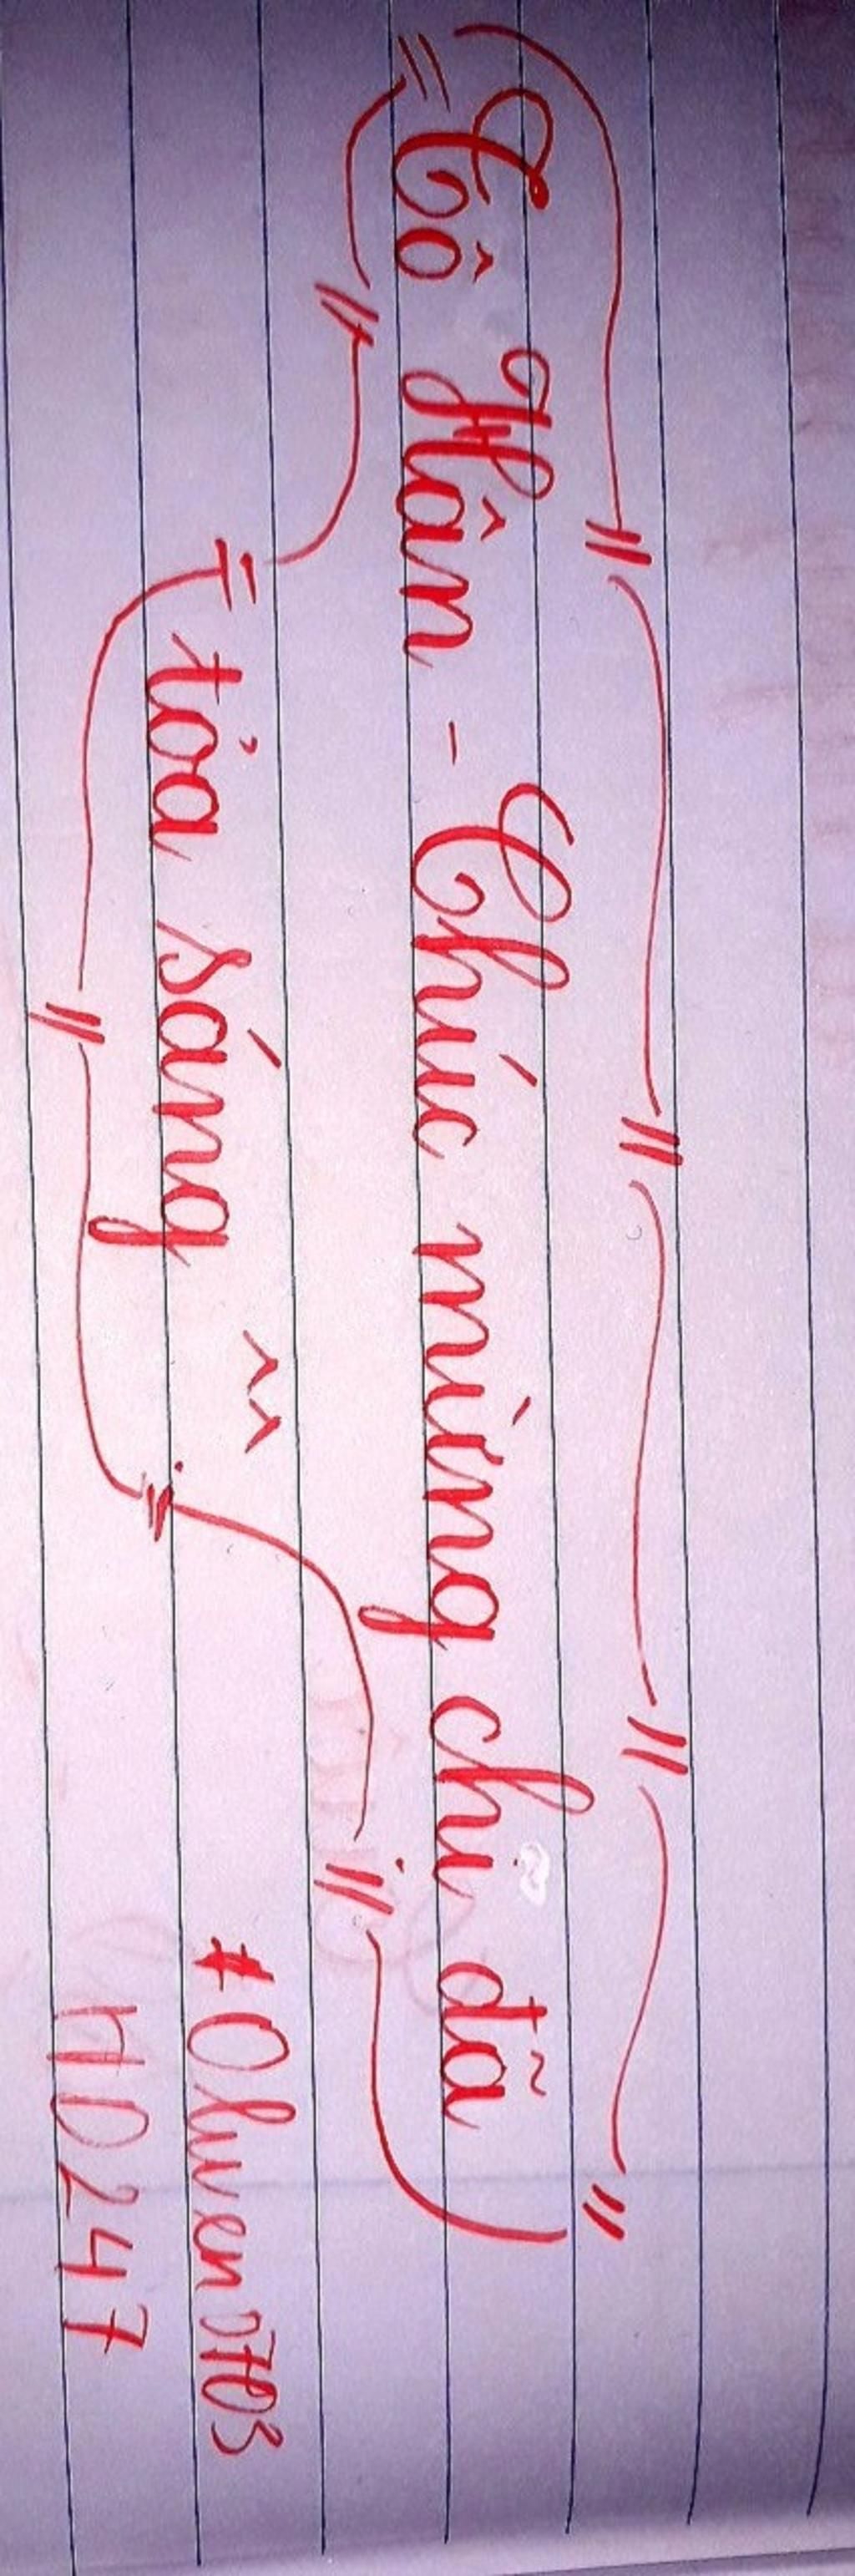 Tô Hân - Chúc mừng chị đã
tỏa sáng ^^
#Olwen0703
HD247